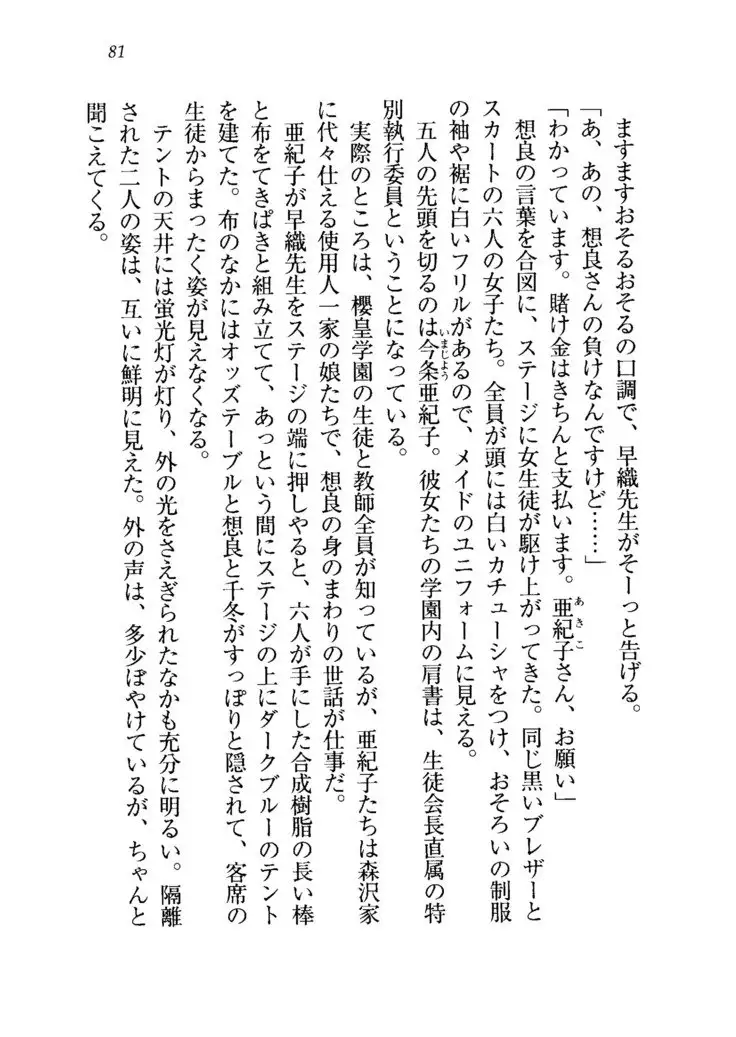 81
ますますおそるおそるの口調で、早織先生がそーっと告げる。
「あ、あの、想良さんの負けなんですけど……」
「わかっています。賭け金はきちんと支払います。亜紀子さん、お願い」
あきこ
想良の言葉を合図に、ステージに女生徒が駆け上がってきた。同じ黒いブレザーと
スカートの六人の女子たち。全員が頭には白いカチューシャをつけ、おそろいの制服
の袖や裾に白いフリルがあるので、メイドのユニフォームに見える。
五人の先頭を切るのは今条亜紀子。彼女たちの学園内の肩書は、生徒会長直属の特
いまじよう
別執行委員ということになっている。
実際のところは、櫻皇学園の生徒と教師全員が知っているが、亜紀子たちは森沢家
に代々仕える使用人一家の娘たちで、想良の身のまわりの世話が仕事だ。
亜紀子が早織先生をステージの端に押しやると、六人が手にした合成樹脂の長い棒
と布をてきぱきと組み立てて、あっという間にステージの上にダークブルーのテント
を建てた。布のなかにはオッズテーブルと想良と千冬がすっぽりと隠されて、客席の
生徒からまったく姿が見えなくなる。
テントの天井には蛍光灯が灯り、外の光をさえぎられたなかも充分に明るい。隔離
された二人の姿は、互いに鮮明に見えた。外の声は、多少ぼやけているが、ちゃんと
聞こえてくる。